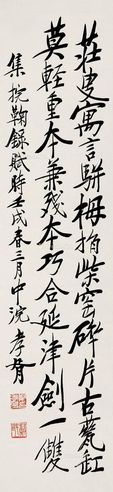 莊叟寓言駢拇指柴窑碎片古甆缸
莫輕重本兼殘本巧合延津劍一雙
集鞠録賦時壬戌春三月中浣 孝胥